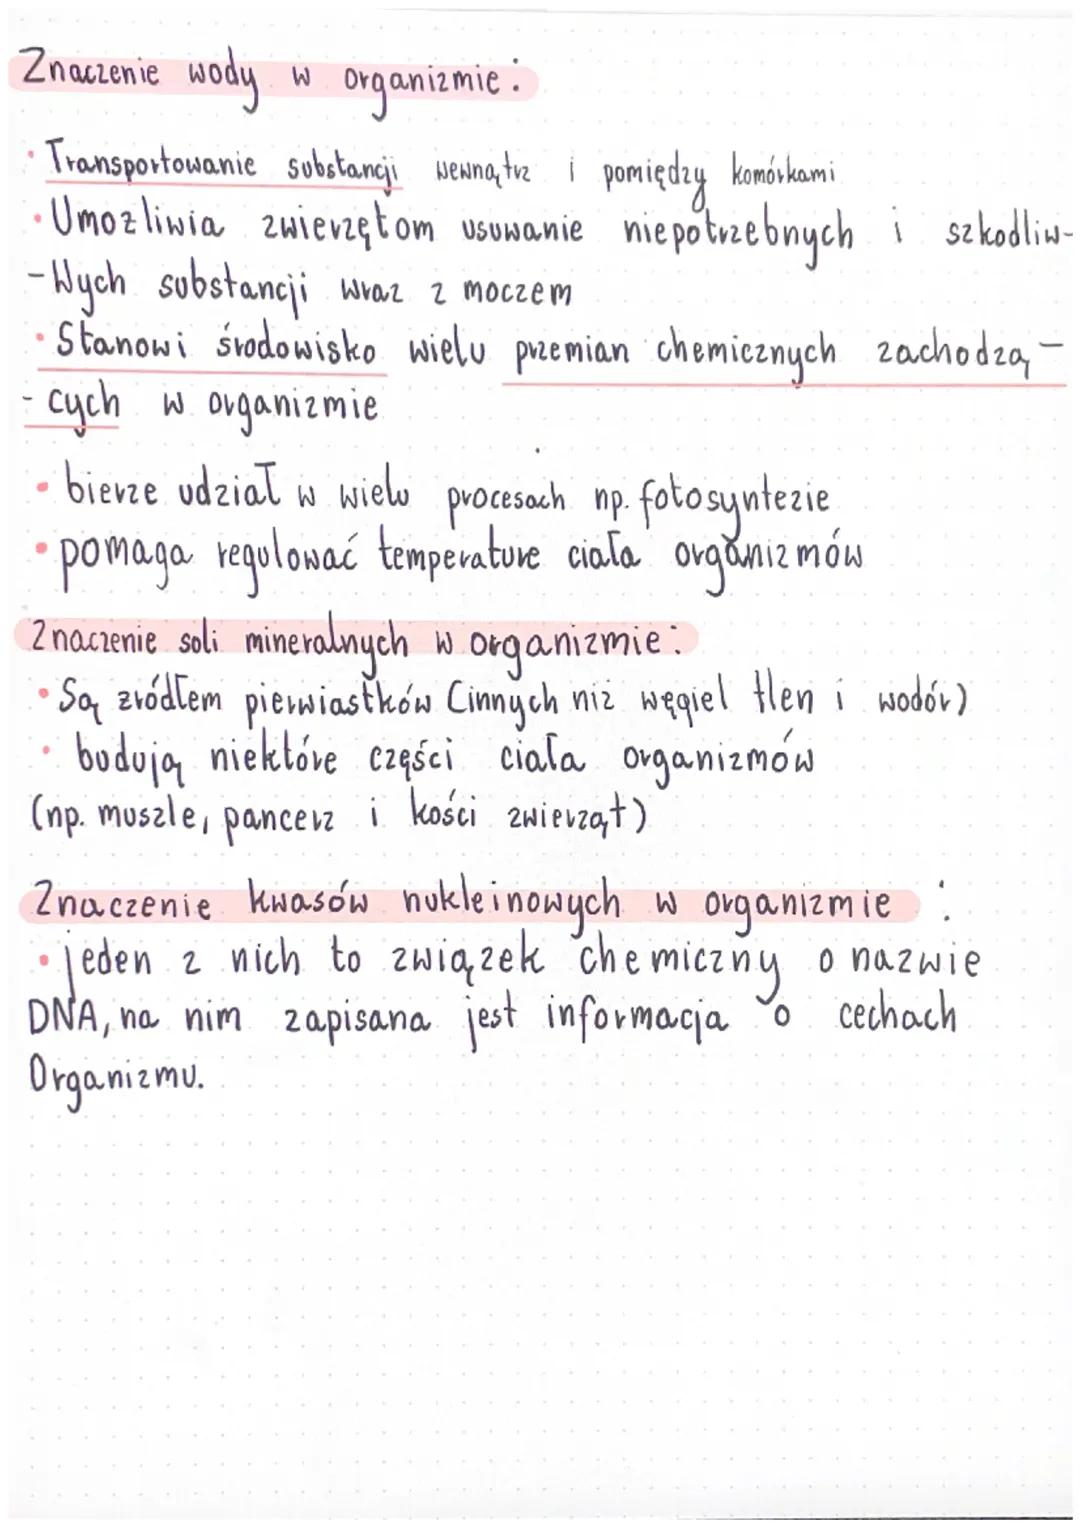 Znaczenie wody w organizmie:
• Transportowanie substancji wewnątrz i pomiędzy komórkami
• Umożliwia zwierzętom usuwanie niepotrzebnych i szkodliw-
-wych substancji wraz z moczem
• Stanowi środowisko wielu przemian chemicznych zachodzą-
- cych w organizmie
• bierze udział w wielu procesach np. fotosyntezie
• pomaga regulować temperature ciała organizmów
Znaczenie soli mineralnych w organizmie:
• Są zródłem pierwiastków (innych niż węgiel tlen i wodór)
• budują niektóre części ciała organizmów
(np. muszle, pancerz i kości zwierząt)
Znaczenie kwasów nukleinowych w organizmie :
• jeden z nich to związek chemiczny o nazwie
DNA, na nim zapisana jest informacja o cechach
Organizmu.